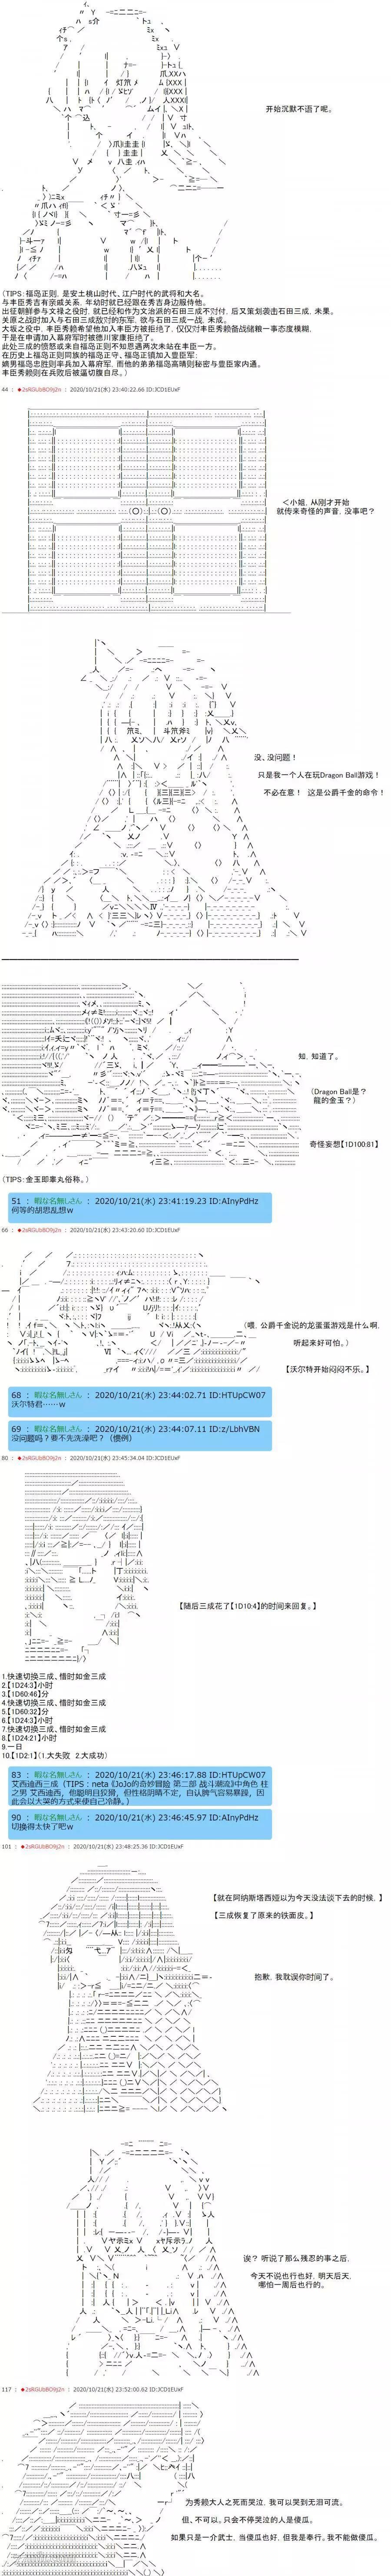 开始沉默不语了呢。
（TIPS：福岛正则，是安土桃山时代、江户时代的武将和大名。
与丰臣秀吉有亲戚关系，年幼时就已经跟在秀吉身边服侍他。
出征朝鲜参与文禄之役时，就已经和作为文治派的石田三成不对付，后又策划袭击石田三成，未果。
关原之战时加入与石田三成敌对的东军，欲与石田三成一战，未成。
大坂之役中，丰臣秀赖希望他加入丰臣方被拒绝了，仅仅对丰臣秀赖备战储粮一事态度模糊，
于是在申请加入幕府军时被德川家康拒绝了。
此处三成的愤怒或来自福岛正则不知恩遇两次未站在丰臣一方。
在历史上福岛正则同族的福岛正守、福岛正镇加入豊臣军；
嫡男福岛忠胜则率兵加入幕府军，而他的弟弟福岛高晴则秘密与豊臣家内通。
丰臣秀赖则在兵败后被逼切腹自尽。）
44 ： ◆2sRGUbBO9j2n ： 2020/10/21(水) 23:40:22.66 ID:JCD1EUxF
＜小姐，从刚才开始
就传来奇怪的声音，没事吧？
没、没问题！
只是我一个人在玩Dragon Ball游戏！
不必在意！ 这是公爵千金的命令！
知、知道了。
（Dragon Ball是？
龍的金玉？）
奇怪妄想【1D100:81】
（TIPS：金玉即睾丸俗称。）
51 ： 暇な名無しさん ： 2020/10/21(水) 23:41:19.23 ID:AInyPdHz
何等的胡思乱想w
66 ： ◆2sRGUbBO9j2n ： 2020/10/21(水) 23:43:20.60 ID:JCD1EUxF
（喂，公爵千金说的龙蛋蛋游戏是什么啊，
听起来好可怕。）
【沃尔特开始闷闷不乐。】
68 ： 暇な名無しさん ： 2020/10/21(水) 23:44:02.71 ID:HTUpCW07
沃尔特君……w
69 ： 暇な名無しさん ： 2020/10/21(水) 23:44:07.11 ID:z/LbhVBN
没问题吗？要不先洗澡吧？（惯例）
80 ： ◆2sRGUbBO9j2n ： 2020/10/21(水) 23:45:34.04 ID:JCD1EUxF
【随后三成花了【1D10:4】的时间来回复。】
1.快速切换三成、惜时如金三成
2.【1D24:3】小时
3.【1D60:46】分
4.快速切换三成、惜时如金三成
5.【1D60:32】分
6.【1D24:3】小时
7.快速切换三成、惜时如金三成
8.【1D24:21】小时
9.一日
10.【1D2:1】（1.大失败 2.大成功）
83 ： 暇な名無しさん ： 2020/10/21(水) 23:46:17.88 ID:HTUpCW07
艾西迪西三成（TIPS：neta《JoJo的奇妙冒险 第二部 战斗潮流》中角色 柱
之男 艾西迪西，他聪明且狡猾，但性格阴晴不定，自认脾气容易暴躁，因
此会以大哭的方式来使自己冷静。）
90 ： 暇な名無しさん ： 2020/10/21(水) 23:46:45.97 ID:HTUpCW07
切换得太快了吧w
101 ： ◆2sRGUbBO9j2n ： 2020/10/21(水) 23:48:25.36 ID:JCD1EUxF
【就在阿纳斯塔西娅以为今天没法谈下去的时候，】
【三成恢复了原来的铁面皮。】
抱歉，我耽误你时间了。
诶？ 听说了那么残忍的事之后，
今天不说也行也好，明天后天，
哪怕一周后也行的。
117 ： ◆2sRGUbBO9j2n ： 2020/10/21(水) 23:52:00.62 ID:JCD1EUxF
为秀赖大人之死而哭泣，我可以哭到无泪可流。
但、不可以。只会不停哭泣的人是傻瓜。
如果只是一介武士，当傻瓜也好，但我是奉行。我不能做傻瓜。